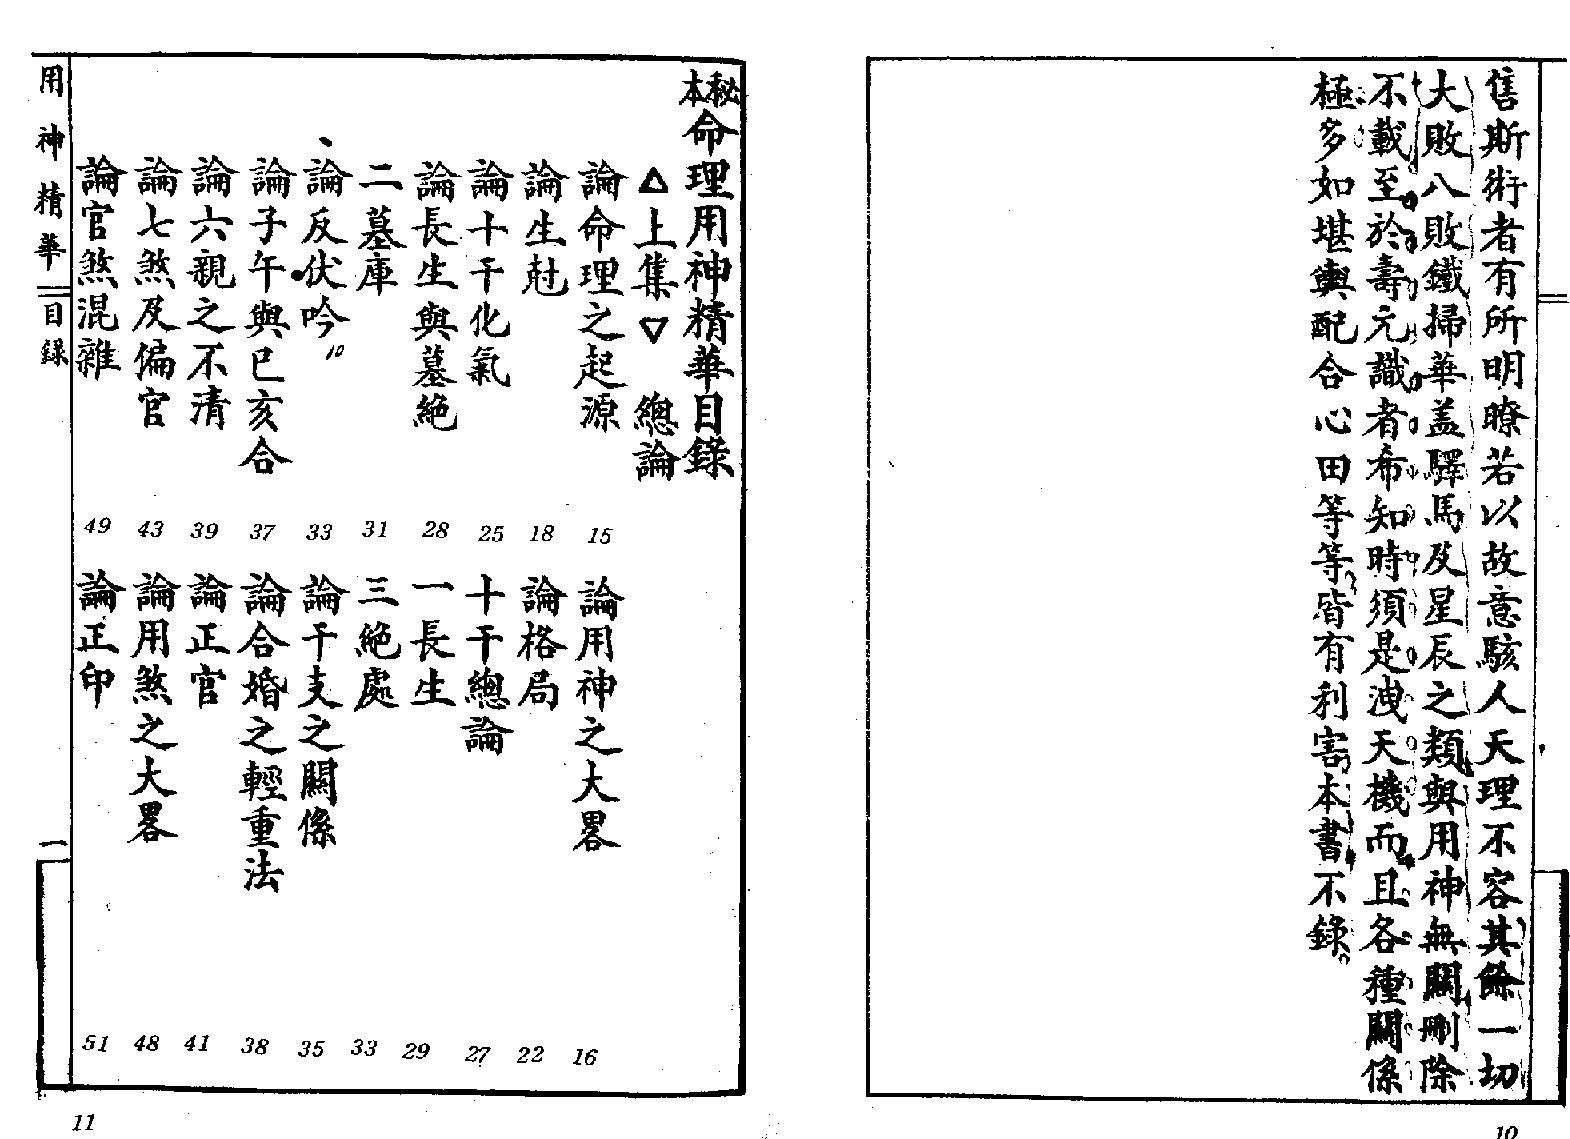 售斯術者有所明瞭若以故意駭人天理不容其餘一切
大敗八敗鐵掃華蓋驛馬及星辰之類與用神無關刪除
不載至於壽元識者希知時須是洩天機而且各種關係
極多如堪輿配合心田等等皆有利害本書不錄。
10
秘本命理用神精華目錄
△上集▽　總論
論命理之起源 15
論用神之大畧 16
論生尅 18
論格局 22
論十干化氣 25
十干總論 27
論長生與墓絕 28
一長生 29
二墓庫 31
三絕處 33
論反伏吟 10 33
論干支之關係 35
論子午與巳亥合 37
論合婚之輕重法 38
論六親之不清 39
論正官 41
論七煞及偏官 43
論用煞之大畧 48
論官煞混雜 49
論正印 51
用神精華 目錄 一
11